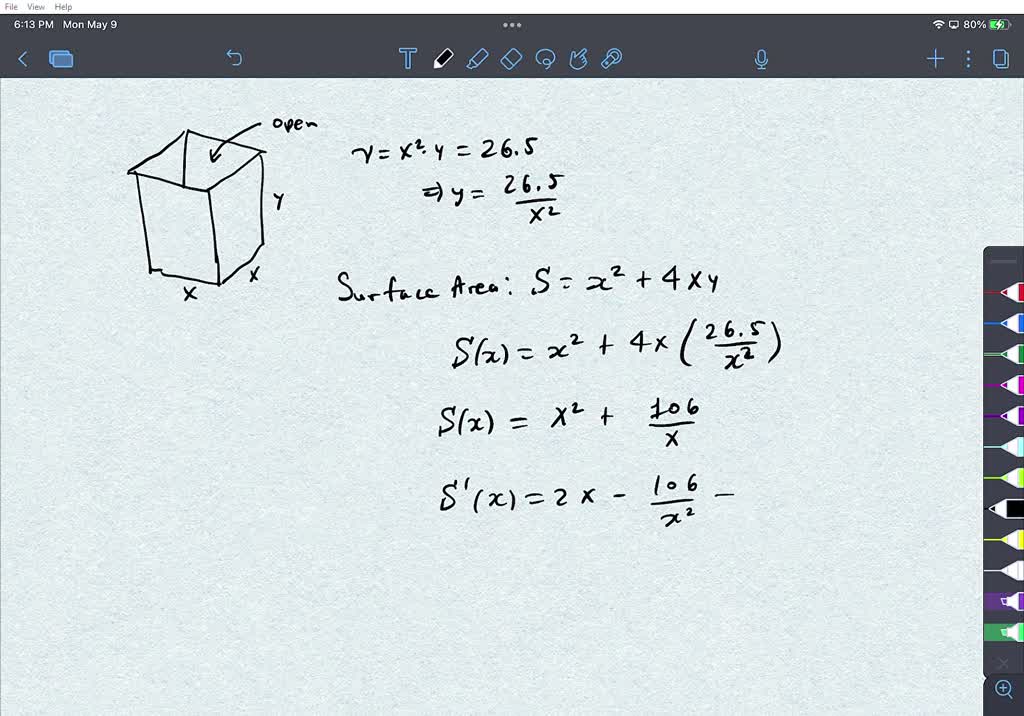 File View Help
6:13 PM Mon May 9
80%
T
open
y
x
x
V = x²·y = 26.5
⇒ y = 26.5/x²
Surface Area: S = x² + 4xy
S(x) = x² + 4x (26.5/x²)
S(x) = x² + 106/x
S'(x) = 2x - 106/x² -